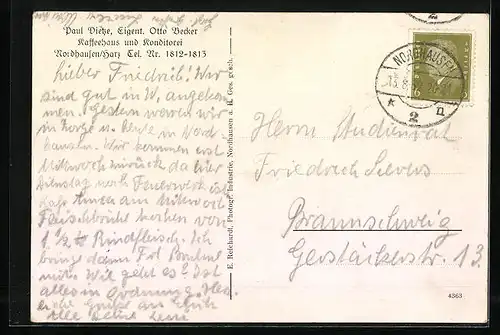 Paul Dietze, Eigent. Otto Becker
Kaffeehaus und Konditorei
Nordhausen/Harz Tel. Nr. 1812-1813
Lieber Friedrich! Wir
sind gut in W. angekom
men. Gestern waren wir
im Harze u. heute in Nord
hausen. Wir kommen erst
Mittwoch zurück da hier
Dienstag noch Feuerwerk ist
daß Anna am Mittwoch
Fleischbrühe kochen von
1 ½ Rindfleisch. Ich
bringe dann Frl.
mit. Wie geht es? Ist
alles in Ordnung. Herz
liche Grüße an Euch
alle
E. Reichardt, Photogr. Industrie, Nordhausen a. H. Ges. gesch.
NORDHAUSEN
2
n
Herrn Studienrat
Friedrich Sievers
Braunschweig
Gerstäckerstr. 13.
4563